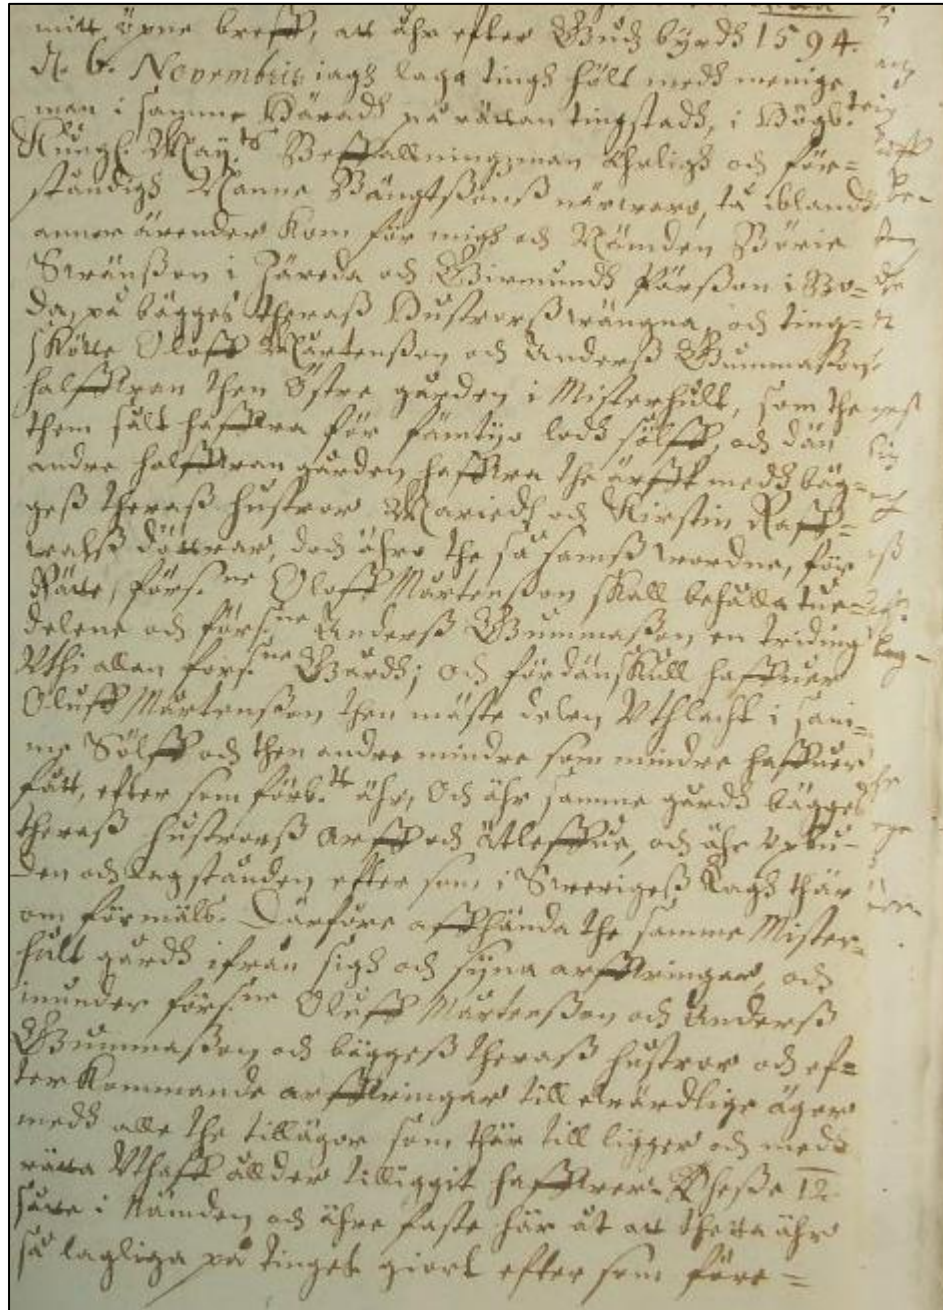 mitt öpne breff, att åhr efter Gudz byrdh 1594.
d. 6. Novembris iagh laga tingh hölt medh menige
man i samme Häradh på rättan tingstadh, i Högb.
Kungl. May:tz Befallningzman ährligh och för=
ståndigh Manne Bängtßonß närwaro, tå iblandh
annor ärender kom för migh och Nämden Börie
Swänßon i Järeda och Germundh Pärßon i Bo=
da, på bägges theraß Hustrorß wängna, och ting=
skötte Oloff Mårtenßon och Anderß Gummaßon
halffwan then Östre gården i Misterhult, som the
them sålt haffwa för fämtijo lodh sölff, och dän
andre halffwan gården haffwa the ärfft medh bäg=
geß theraß hustror Maridh och Kirstin Raff=
walß döttrar, doch ähro the så samß wordne, för
Rätte, förs:ne Oloff Mårtenßon skall behålla twe=
delene och förs:ne Anderß Gummaßon en triding
Uthi allan förs:ne Gårdh; och fördänskull haffuer
Oluff Mårtenßon then mäste delen Uthlacht i sam=
me Sölff och then andre mindre som mindre haffuer
fått, efter som förb:te ähr, Och ähr samme gårdh bägges
theraß hustrorß arff och ätleffue, och ähr upbu=
den och lagstånden effter som i Sweriges Lagh thär
om förmäls. Därföre affhända the samme Mister=
hult gårdh ifrån sigh och syna arffwingar, och
inunder förs:ne Oluff Mårtenßon och Anderß
Gummaßon och bäggeß theraß hustror och ef=
terkommande arffwingar till ewärdlige ägor
medh alle the tillägor som thär till ligger och medh
rätta Uthaff ållder tilliggit haffwer. Theße 12
såte i Nämden och ähre faste här åt att thetta ähr
så lagliga på tinget giort efter som före=